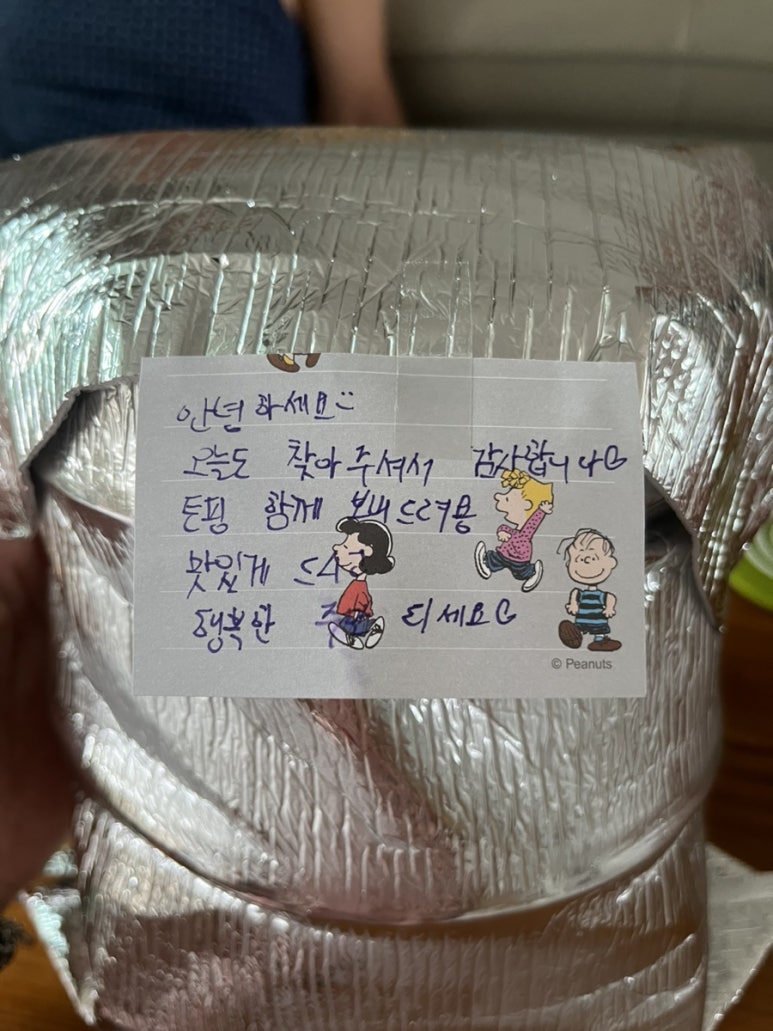 안녕하세요
오늘도 찾아주셔서 감사합니다
토핑 함께 보내드려용
맛있게
행복한 되세요
© Peanuts